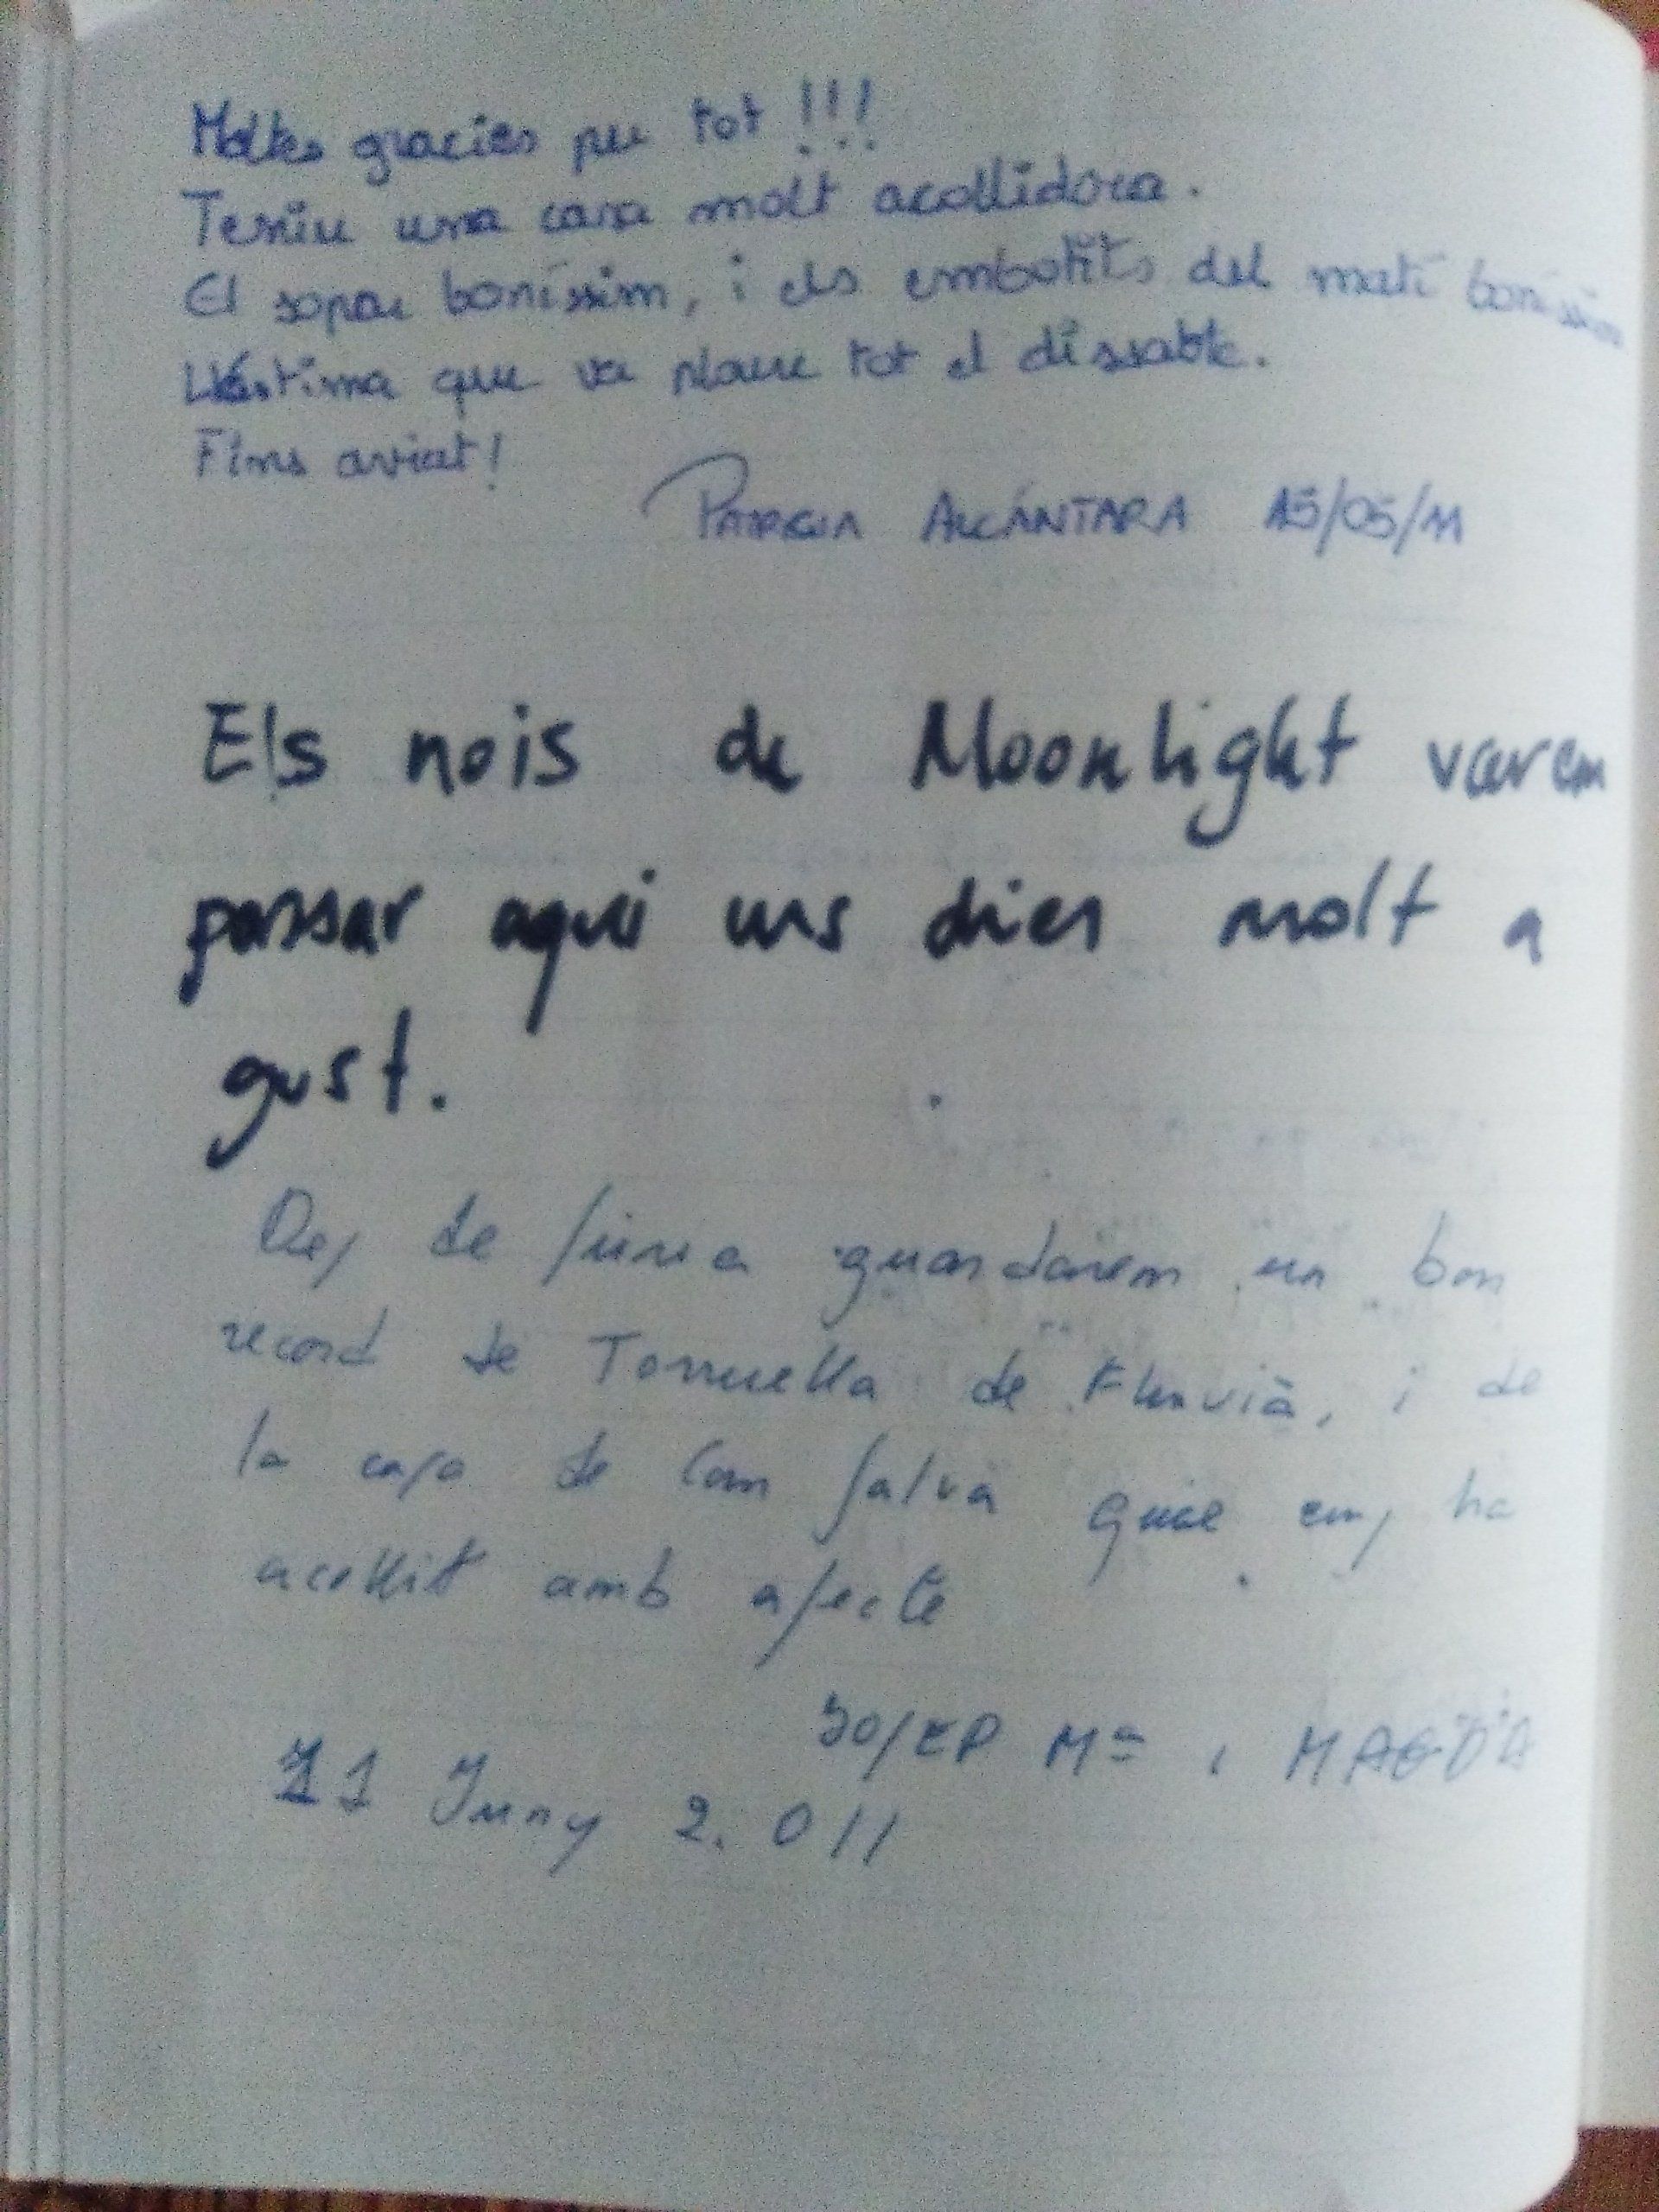 Moltes gracies per tot !!!
Teniu una casa molt acollidora.
El sopar boníssim, i els embotits del matí boníssim
Llástima que va ploure tot el dissabte.
Fins aviat!
PATRICIA ALCÁNTARA 15/05/11
Els nois de Moonlight varem
passar aqui uns dies molt a
gust.
Des de Súria guardarem un bon
record de Torruella de Fluvià, i de
la casa de Can Salvà que ens ha
acollit amb afecte
JOSEP Mª i MAGDA
11 Juny 2.011